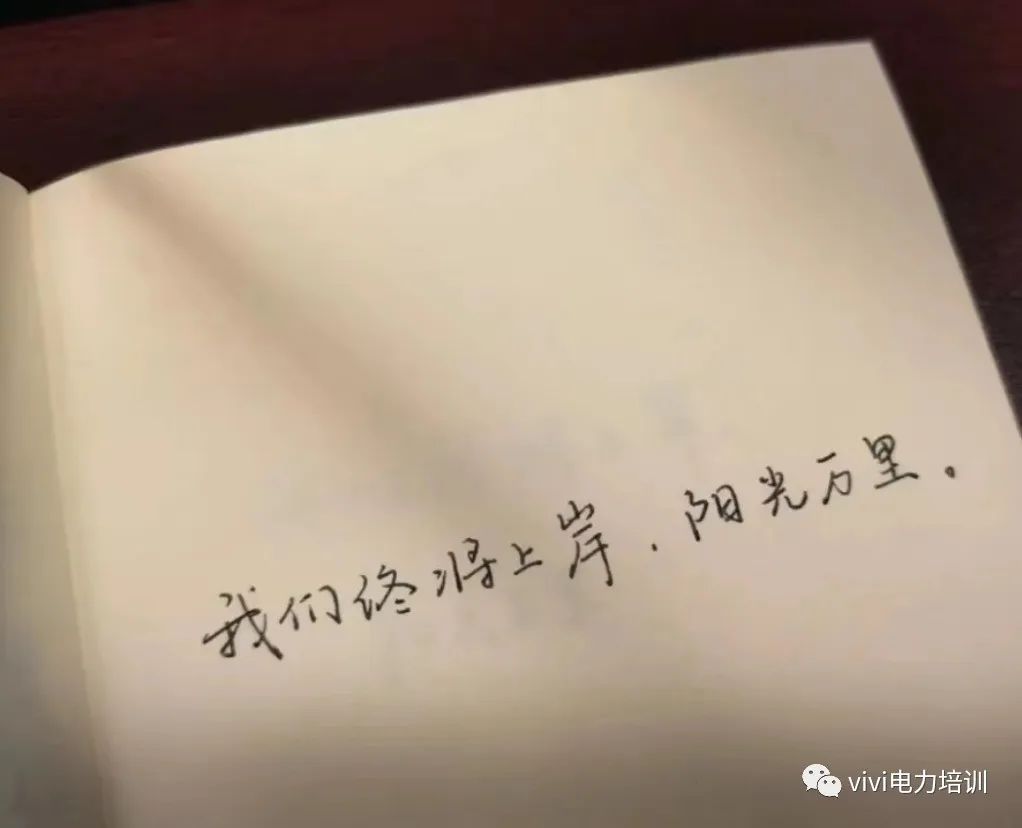 我们终将上岸.阳光万里。
vivi电力培训